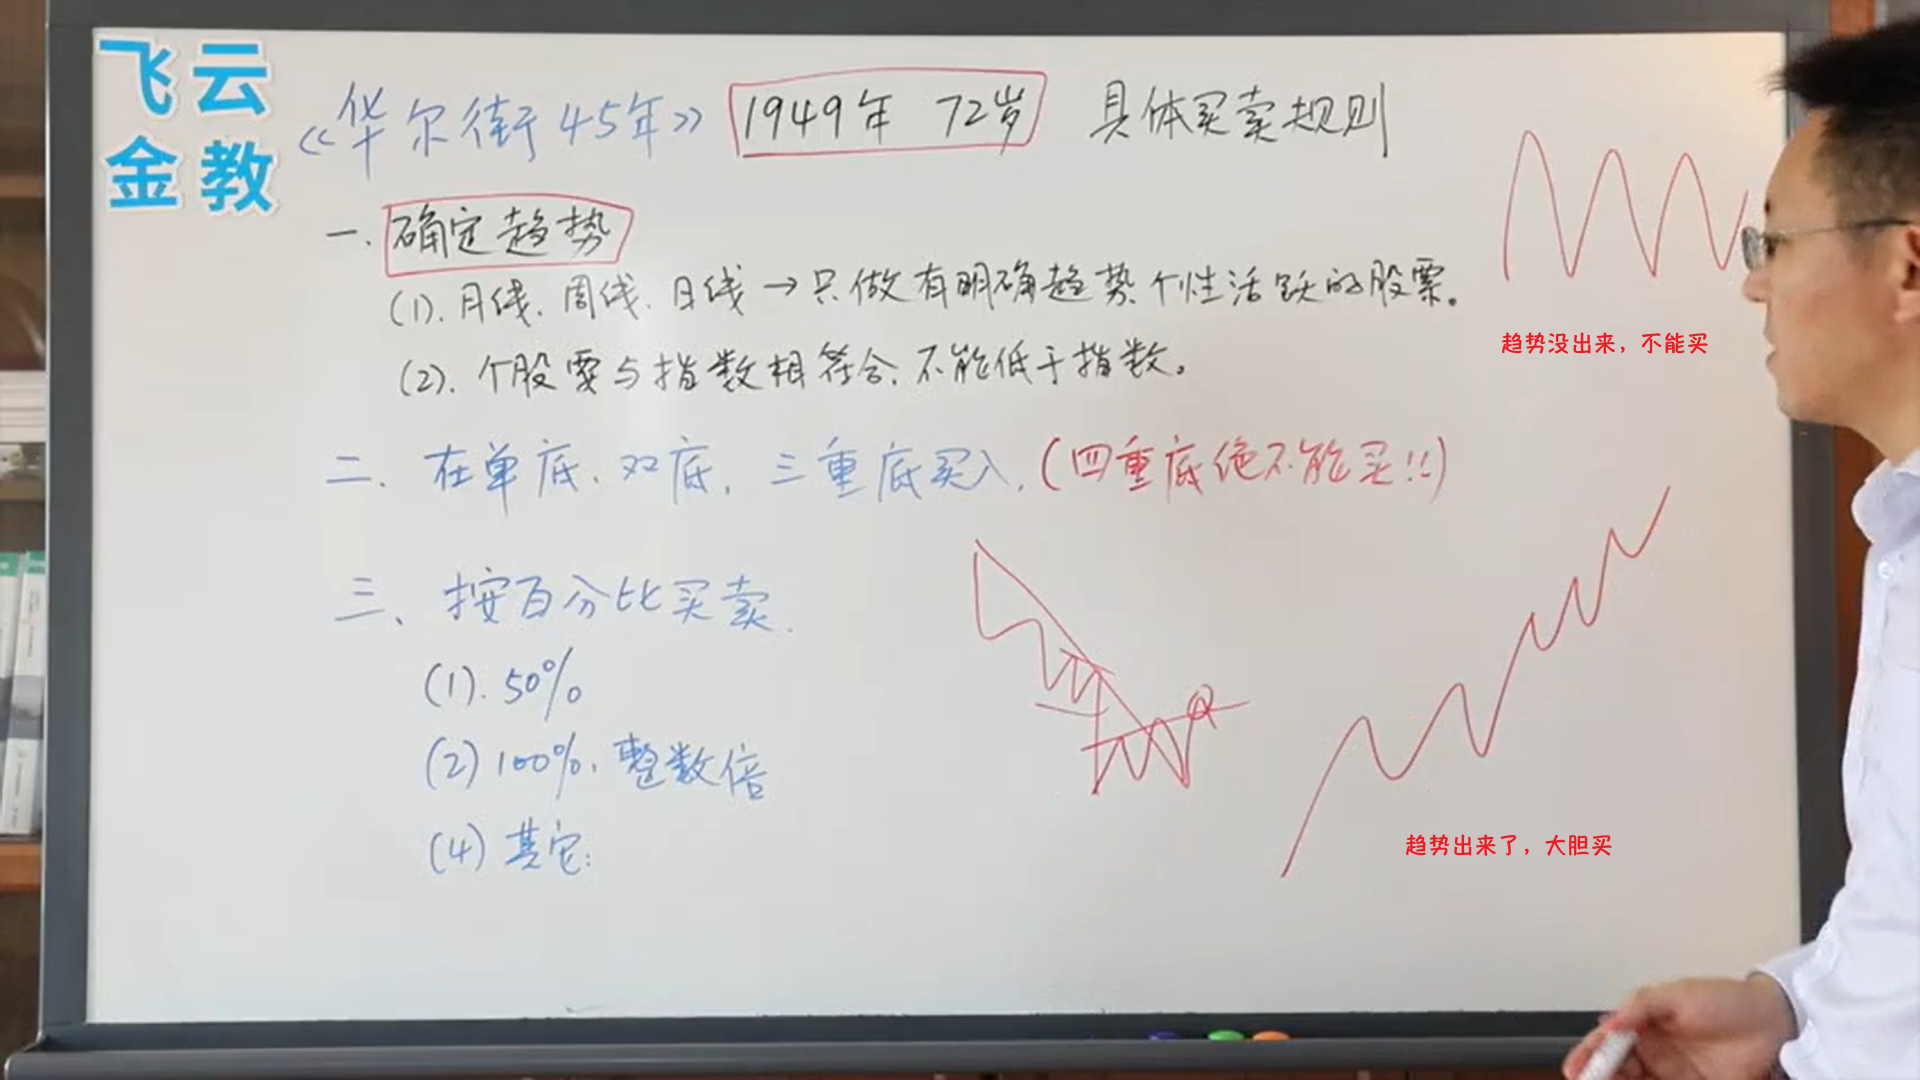 飞云
金教
《华尔街45年》 1949年 72岁 具体买卖规则
一. 确定趋势
(1). 月线、周线、日线→只做有明确趋势、个性活跃的股票。
(2). 个股要与指数相符合、不能低于指数。
趋势没出来，不能买
二. 在单底、双底、三重底买入.(四重底绝不能买!!)
三、按百分比买卖.
(1). 50%
(2) 100%, 整数倍
(4) 其它:
趋势出来了，大胆买